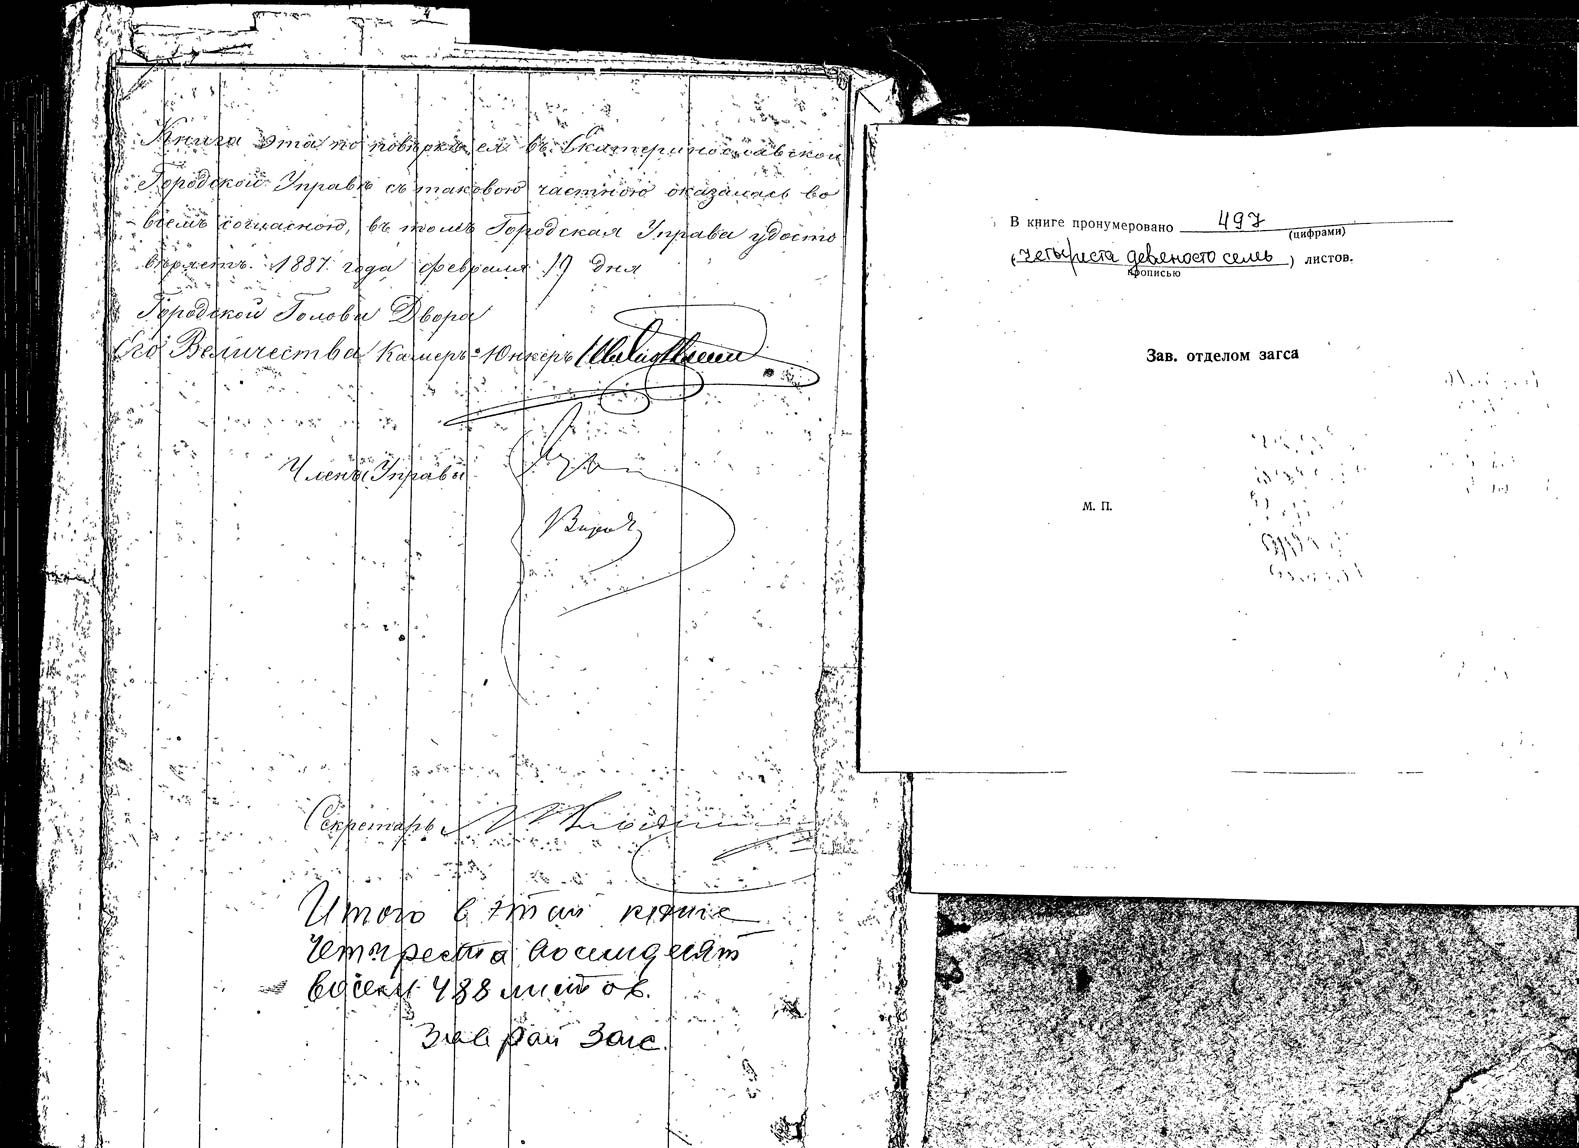 Книга эта по повѣркѣ ея въ Екатеринославской
Городской Управѣ съ таковою частною оказалась во
всемъ согласною, въ томъ Городская Управа удосто
вѣряетъ. 1887 года февраля 19 дня
Городской Голова Двора
Его Величества Камеръ-Юнкеръ
Члены Управы
Секретарь
Итого в этой книге
Четыреста восемдесят
восем 488 листов.
Зав рай Загс.
В книге пронумеровано 497
(цифрами)
(четыреста девяносто семь) листов.
прописью
Зав. отделом загса
М. П.